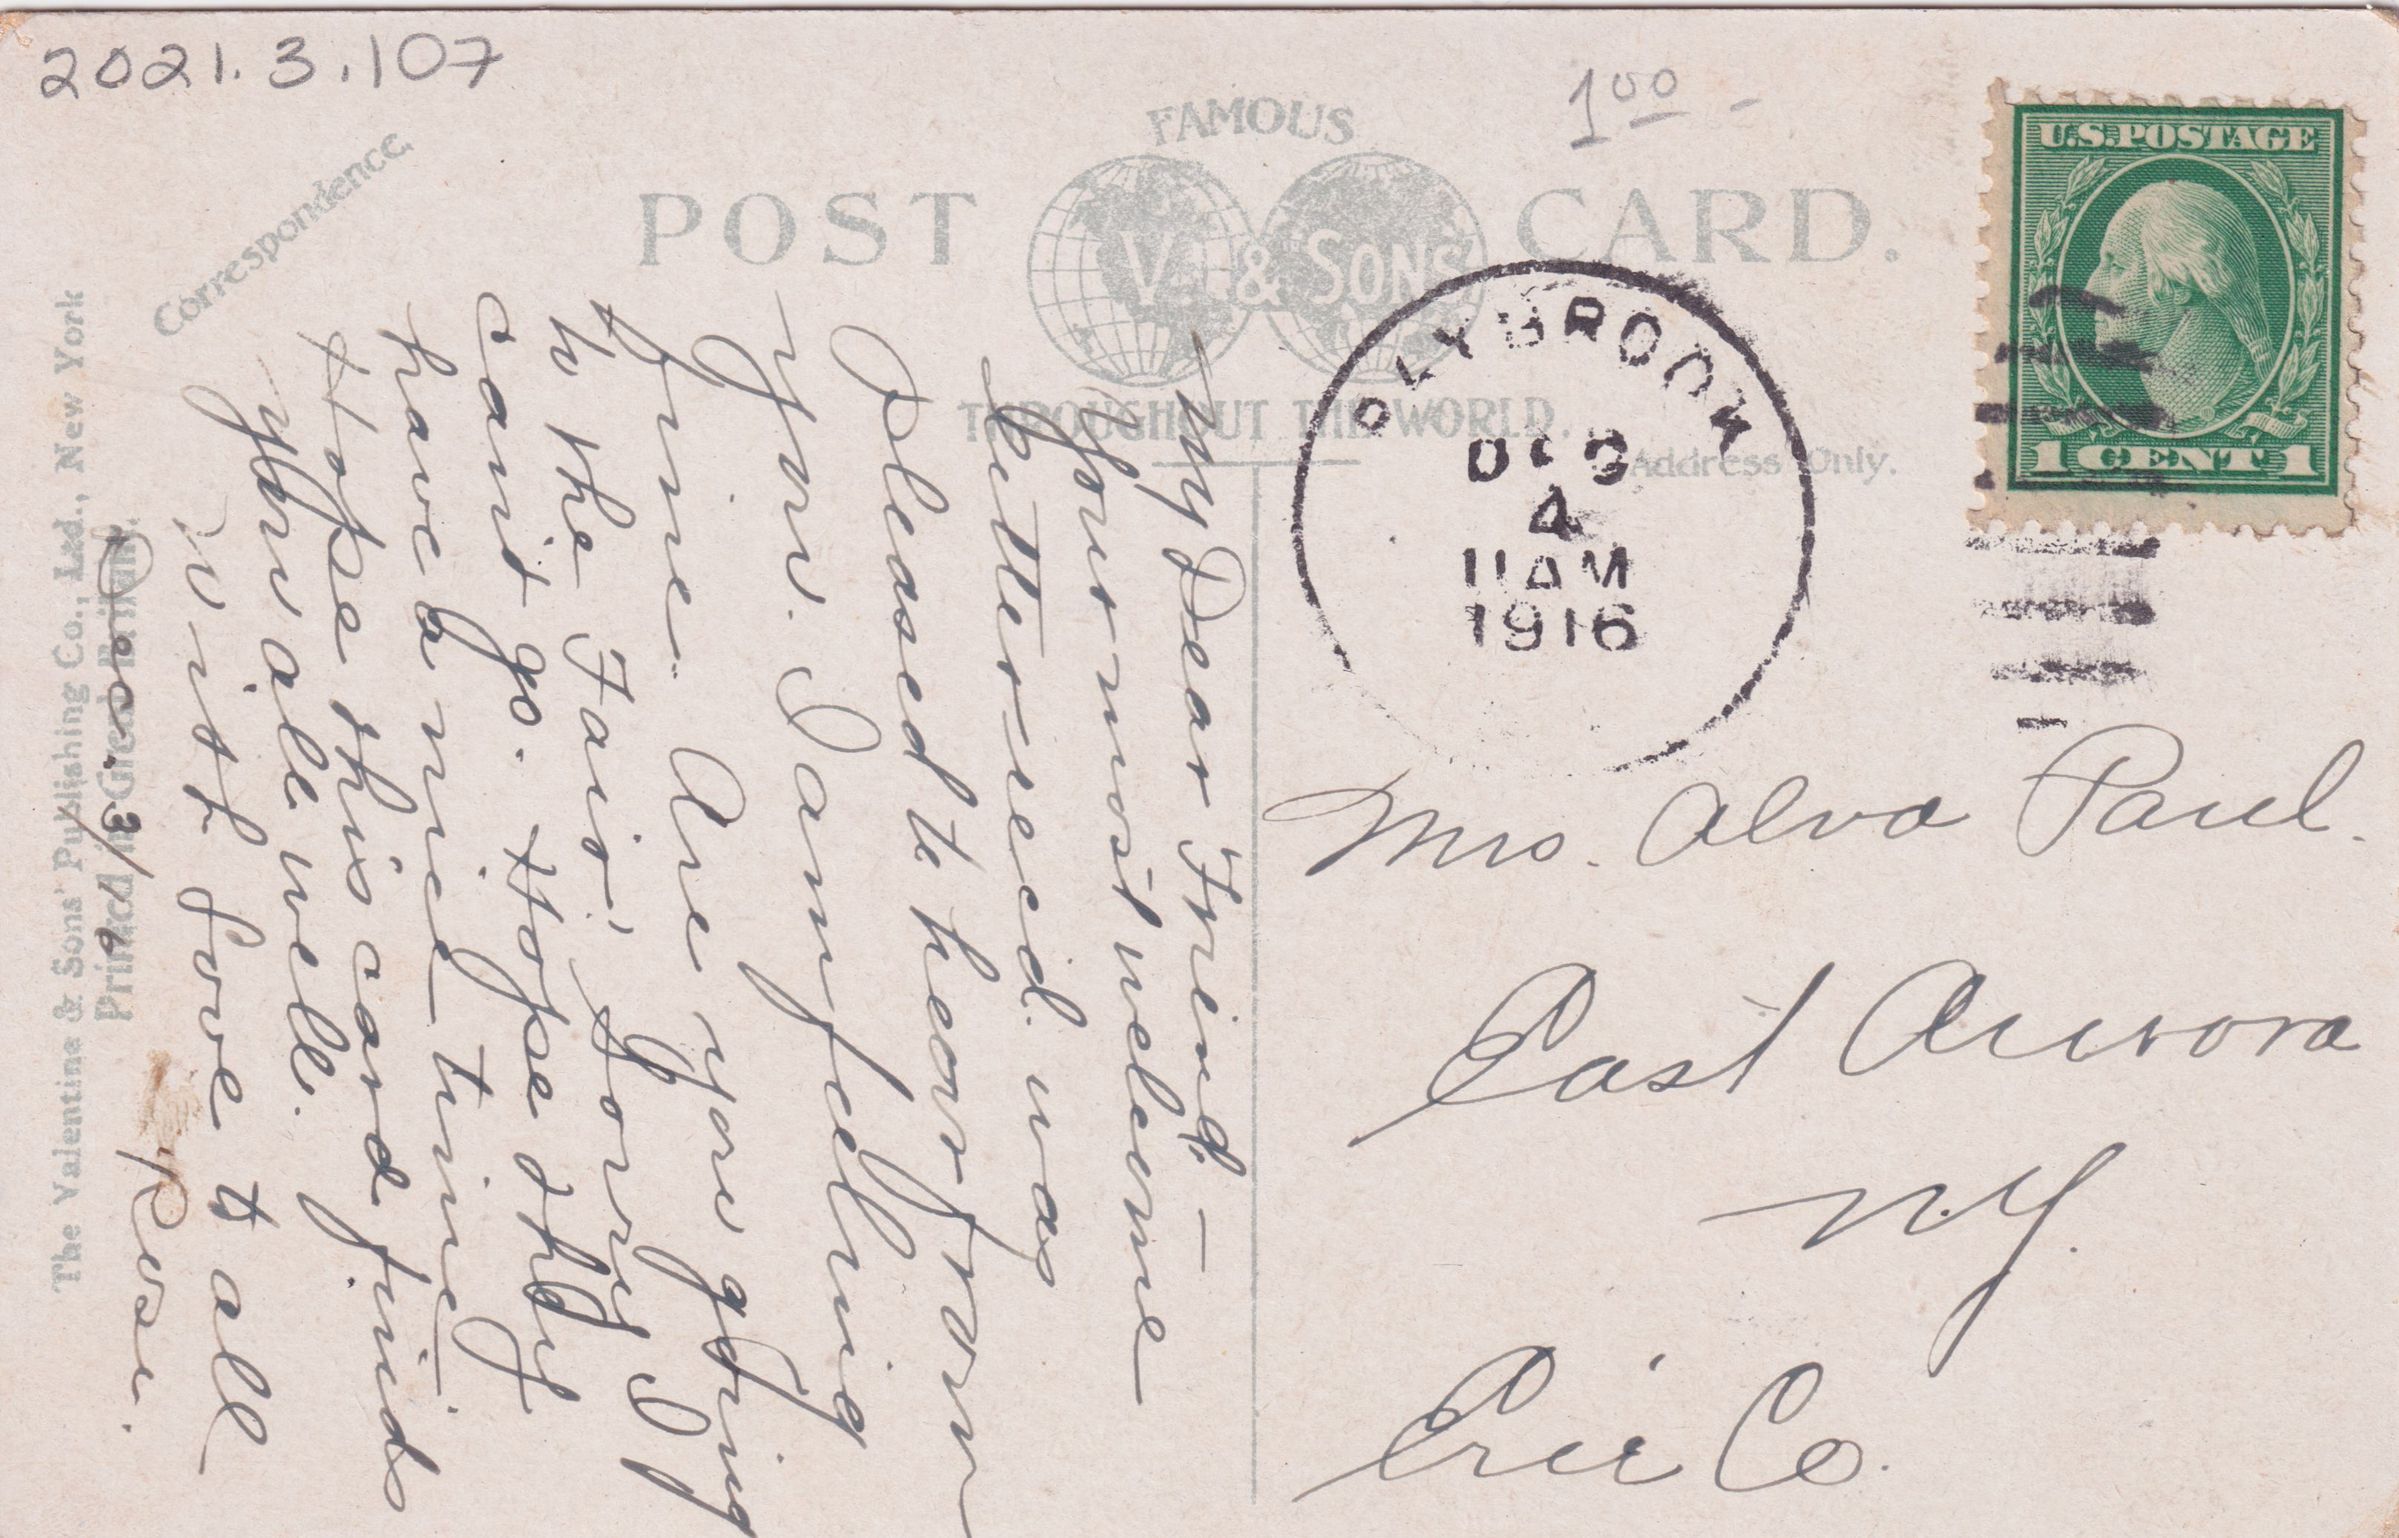 2021.3.107
1 00 -
Correspondence.
FAMOUS
POST CARD.
V. & SONS
THROUGHOUT THE WORLD.
Address Only.
U.S.POSTAGE
1 CENT 1
DEC
4
11 AM
1916
The Valentine & Sons' Publishing Co., Ltd., New York
Printed in Great Britain.
Dec. 3/16
My Dear Friend. —
Your most welcome
letter rec'd. was
pleased to hear from
you. I am feeling
fine. Are you going
to the Fair? Sorry I
can't go. Hope they
have a nice time.
Hope this card finds
you all well.
With love to all
Rose.
Mrs. Alva Paul.
East Aurora
N.Y.
Erie Co.